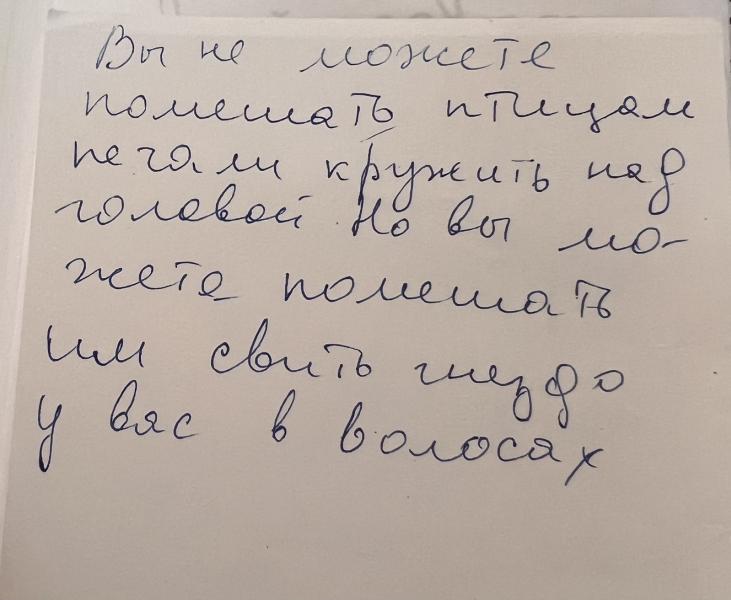 Вы не можете
помешать птицам
печали кружить над
головой Но вы мо-
жете помешать
им свить гнездо
у вас в волосах